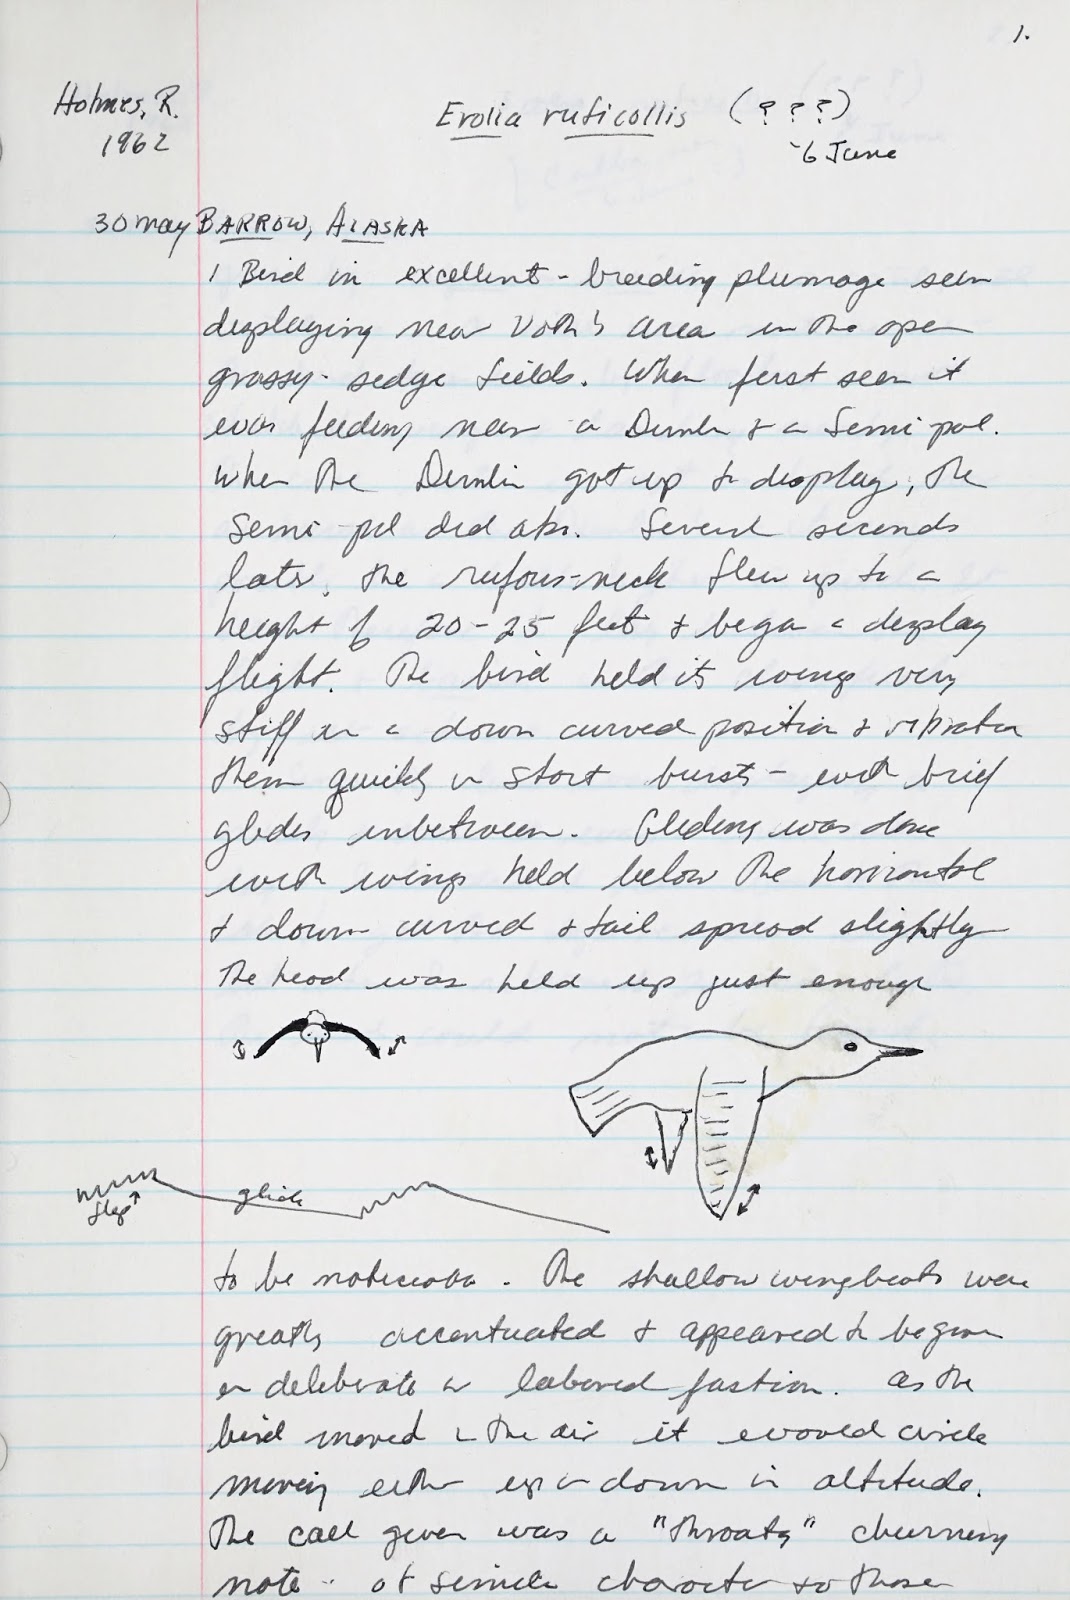 1.
Holmes, R.
1962
Erolia ruficollis (? ? ?)
6 June
30 May BARROW, ALASKA
1 Bird in excellent - breeding plumage seen
displaying near Voth's area in the open
grassy - sedge fields. When first seen it
was feeding near a Dunlin & a Semi pal.
When the Dunlin got up to display, the
Semi-pal did also. Several seconds
later, the rufous-neck flew up to a
height of 20-25 feet & began a display
flight. The bird held its wings very
stiff in a down curved position & vibrated
them quickly in short bursts - with brief
glides inbetween. Gliding was done
with wings held below the horizontal
& down curved & tail spread slightly
The head was held up just enough
flap
glide
to be noticeable. The shallow wingbeats were
greatly accentuated & appeared to be given
in deliberate or labored fashion. As the
bird moved in the air it would circle
moving either up or down in altitude.
The call given was a "throaty" churring
note - of similar character to those